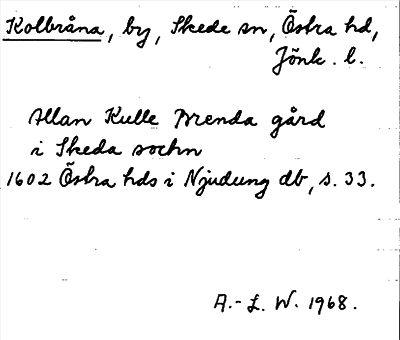 Kolbråna, by, Skede sn, Östra hd,
Jönk. l.
Allan Kulle Brenda gård
i Skeda sochn
1602 Östra hds i Njudung db, s. 33.
A.-L. W. 1968.